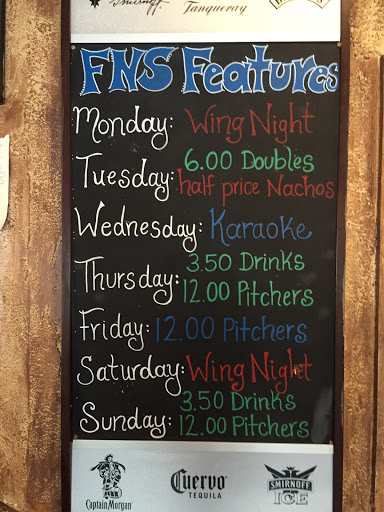 Smirnoff Tanqueray
FNS Features
Monday: Wing Night
Tuesday: 6.00 Doubles
half price Nachos
Wednesday: Karaoke
Thursday: 3.50 Drinks
12.00 Pitchers
Friday: 12.00 Pitchers
Saturday: Wing Night
Sunday: 3.50 Drinks
12.00 Pitchers
Captain Morgan
Cuervo
TEQUILA
SMIRNOFF
ICE